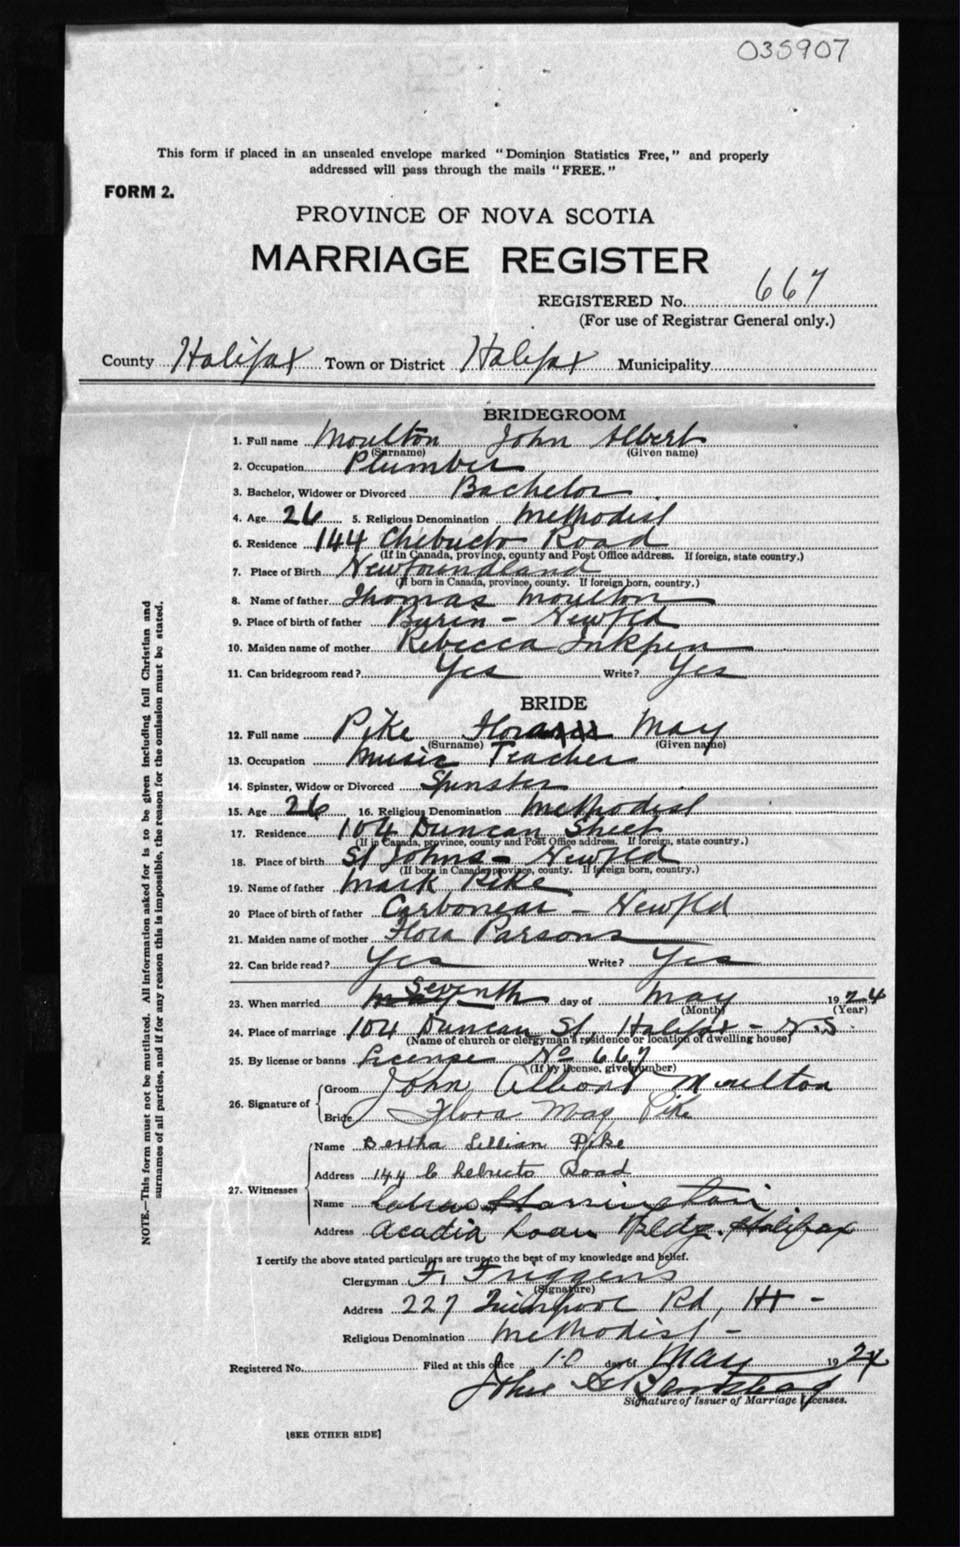 035907
This form if placed in an unsealed envelope marked "Dominion Statistics Free," and properly
addressed will pass through the mails "FREE."
FORM 2.
PROVINCE OF NOVA SCOTIA
MARRIAGE REGISTER
REGISTERED No. 667
(For use of Registrar General only.)
County Halifax Town or District Halifax Municipality
BRIDEGROOM
1. Full name Moulton John Albert
(Surname) (Given name)
2. Occupation Plumber
3. Bachelor, Widower or Divorced Bachelor
4. Age 26 5. Religious Denomination Methodist
6. Residence 144 Chebucto Road
(If in Canada, province, county and Post Office address. If foreign, state country.)
7. Place of Birth Newfoundland
(If born in Canada, province, county. If foreign born, country.)
8. Name of father Thomas Moulton
9. Place of birth of father Burin - Newfld
10. Maiden name of mother Rebecca Inkpen
11. Can bridegroom read? Yes Write? Yes
BRIDE
12. Full name Pike Flora May
(Surname) (Given name)
13. Occupation Music Teacher
14. Spinster, Widow or Divorced Spinster
15. Age 26 16. Religious Denomination Methodist
17. Residence 104 Duncan Street
(If in Canada, province, county and Post Office address. If foreign, state country.)
18. Place of birth St Johns - Newfld
(If born in Canada, province, county. If foreign born, country.)
19. Name of father Mark Pike
20 Place of birth of father Carbonear - Newfld
21. Maiden name of mother Flora Parsons
22. Can bride read? Yes Write? Yes
23. When married Seventh day of May 1924
(Month) (Year)
24. Place of marriage 104 Duncan St, Halifax - N.S.
(Name of church or clergyman's residence or location of dwelling house)
25. By license or banns License No 667
(If by license, give number)
26. Signature of Groom John Albert Moulton
Bride Flora May Pike
27. Witnesses
Name Bertha Lillian Pike
Address 144 Chebucto Road
Name Harrington
Address Acadia Loan Bldg. Halifax
I certify the above stated particulars are true to the best of my knowledge and belief.
Clergyman F. Friggens
(Signature)
Address 227 Rd, Hx -
Religious Denomination Methodist -
Registered No. Filed at this office 10 day of May 1924
John
Signature of Issuer of Marriage Licenses.
[SEE OTHER SIDE]
NOTE.—This form must not be mutilated. All information asked for is to be given including full Christian and
surnames of all parties, and if for any reason this is impossible, the reason for the omission must be stated.